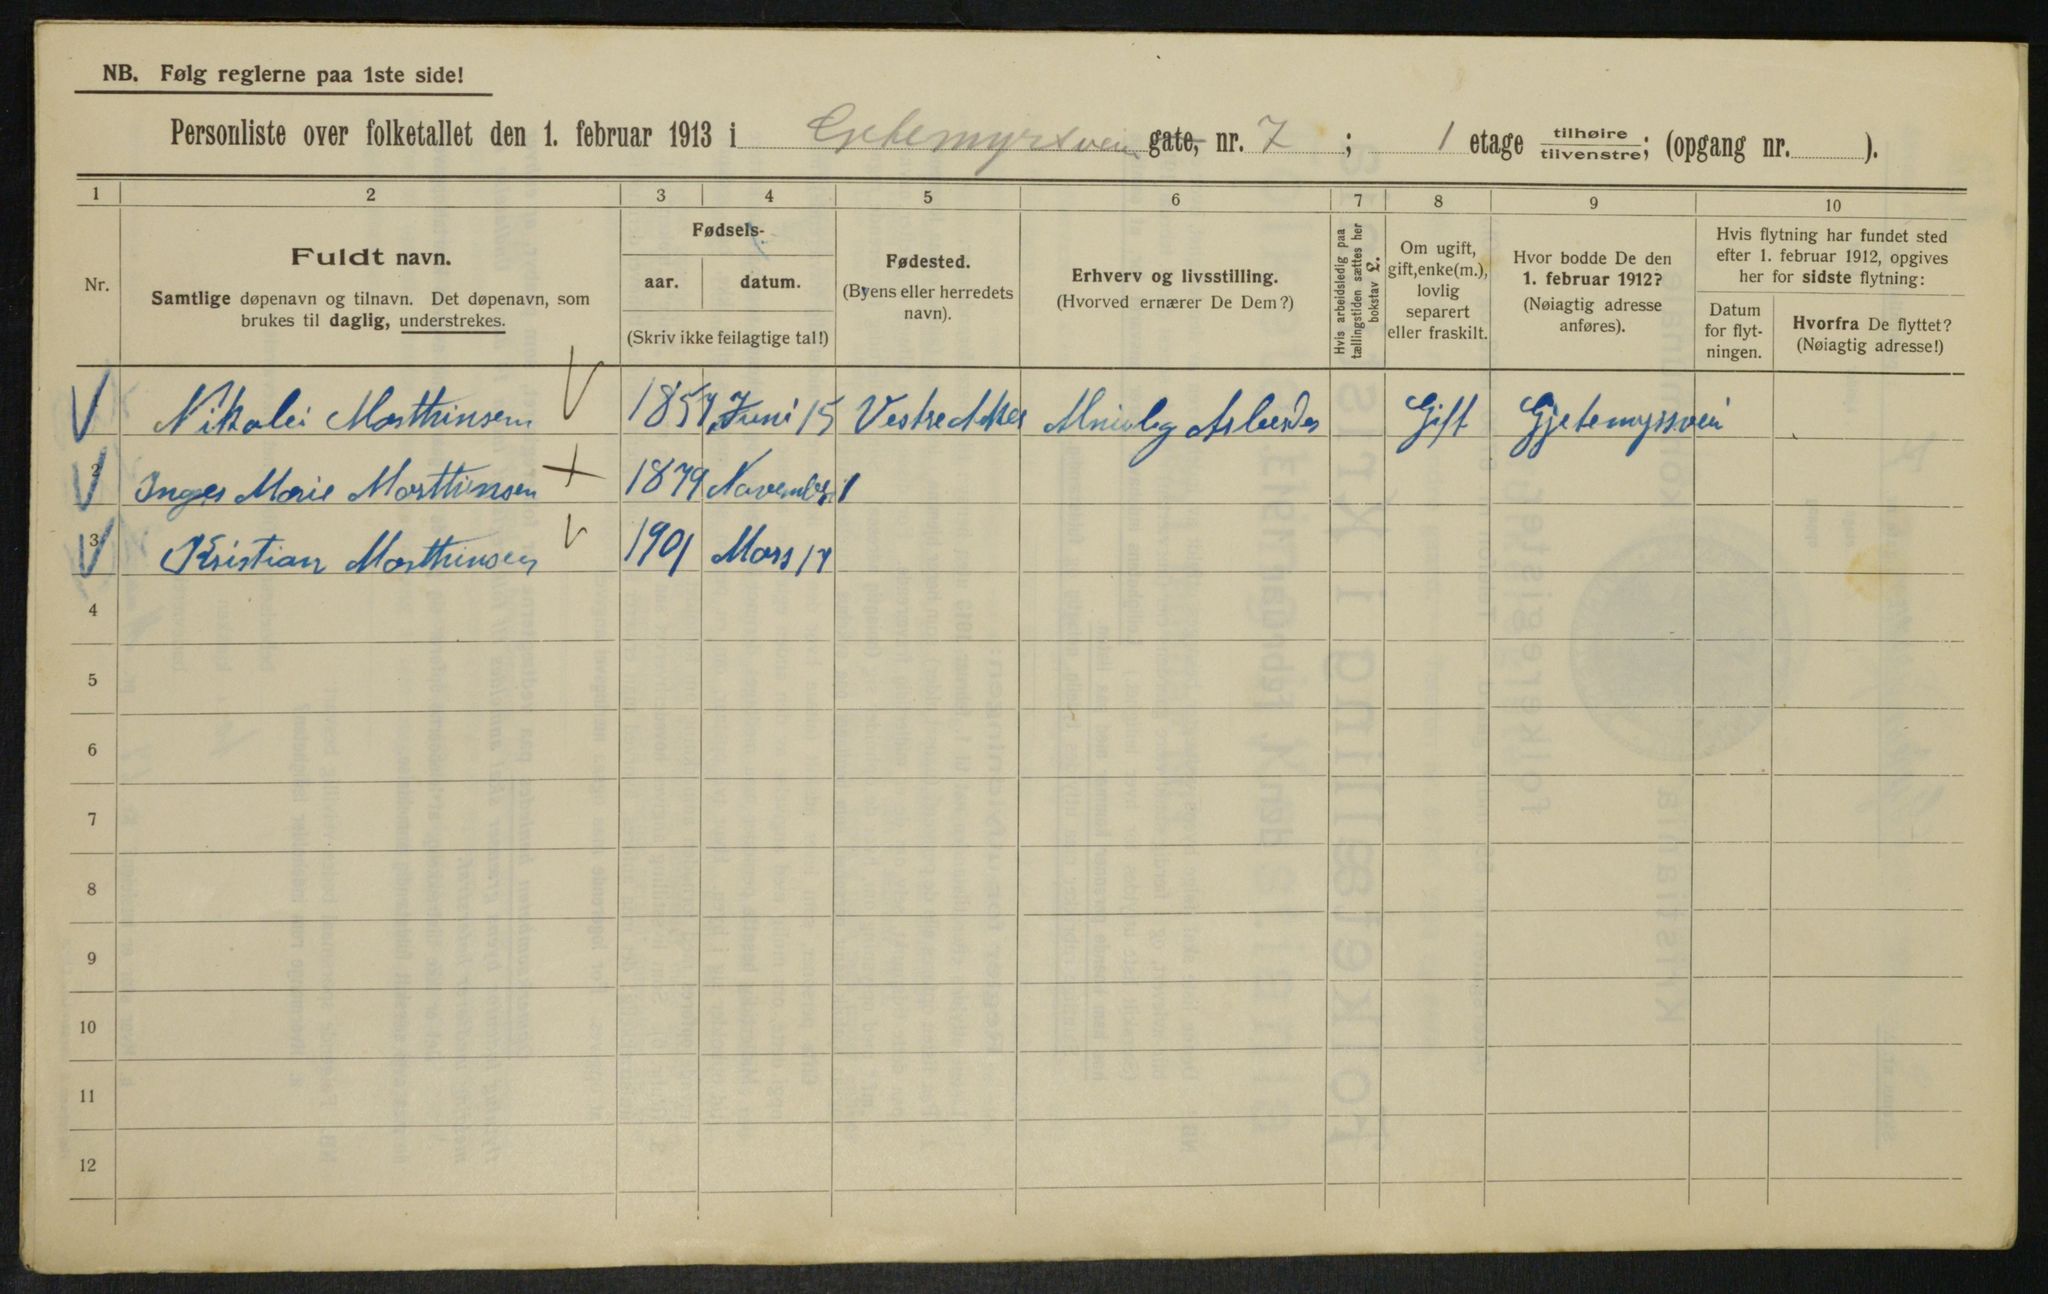 NB. Følg reglerne paa 1ste side!
Personliste over folketallet den 1. februar 1913 i Gjetemyrsvein gate, nr. 7 ; 1 etage tilhøire tilvenstre; (opgang nr. ).
1 2 3 4 5 6 7 8 9 10
Nr.
Fuldt navn.
Samtlige døpenavn og tilnavn. Det døpenavn, som
brukes til daglig, understrekes.
Fødsels-
aar. datum.
(Skriv ikke feilagtige tal!)
Fødested.
(Byens eller herredets
navn).
Erhverv og livsstilling.
(Hvorved ernærer De Dem?)
Hvis arbeidsledig paa
tællingstiden sættes her
bokstav L.
Om ugift,
gift, enke(m.),
lovlig
separert
eller fraskilt.
Hvor bodde De den
1. februar 1912?
(Nøiagtig adresse
anføres).
Hvis flytning har fundet sted
efter 1. februar 1912, opgives
her for sidste flytning:
Datum
for flyt-
ningen.
Hvorfra De flyttet?
(Nøiagtig adresse!)
Nikolei Marthinsen 1857 Juni 15 Vestre Aker Almindelig Arbeider Gift Gjetemyssvei
2 Inger Marie Marthinsen 1879 November 1
3 Kristian Marthinsen 1901 Mars 17
4
5
6
7
8
9
10
11
12